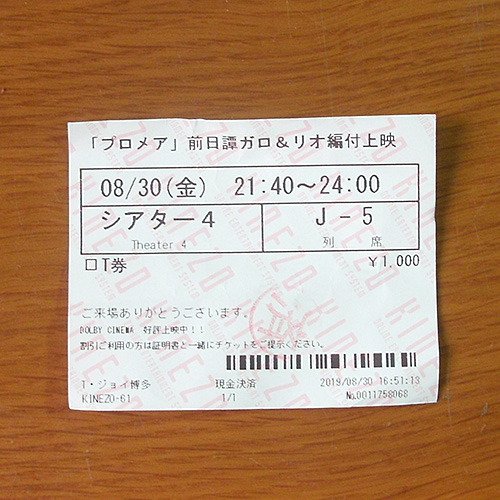 「プロメア」前日譚ガロ&リオ編付上映
08/30(金) 21:40～24:00
シアター4 J-5
Theater 4 列 席
□T券 ¥1,000
ご来場ありがとうございます。
DOLBY CINEMA 好評上映中!!
割引ご利用の方は証明書と一緒にチケットをご提示ください。
T・ジョイ博多 現金決済 2019/08/30 16:51:13
KINEZO-61 1/1 No.0011758068